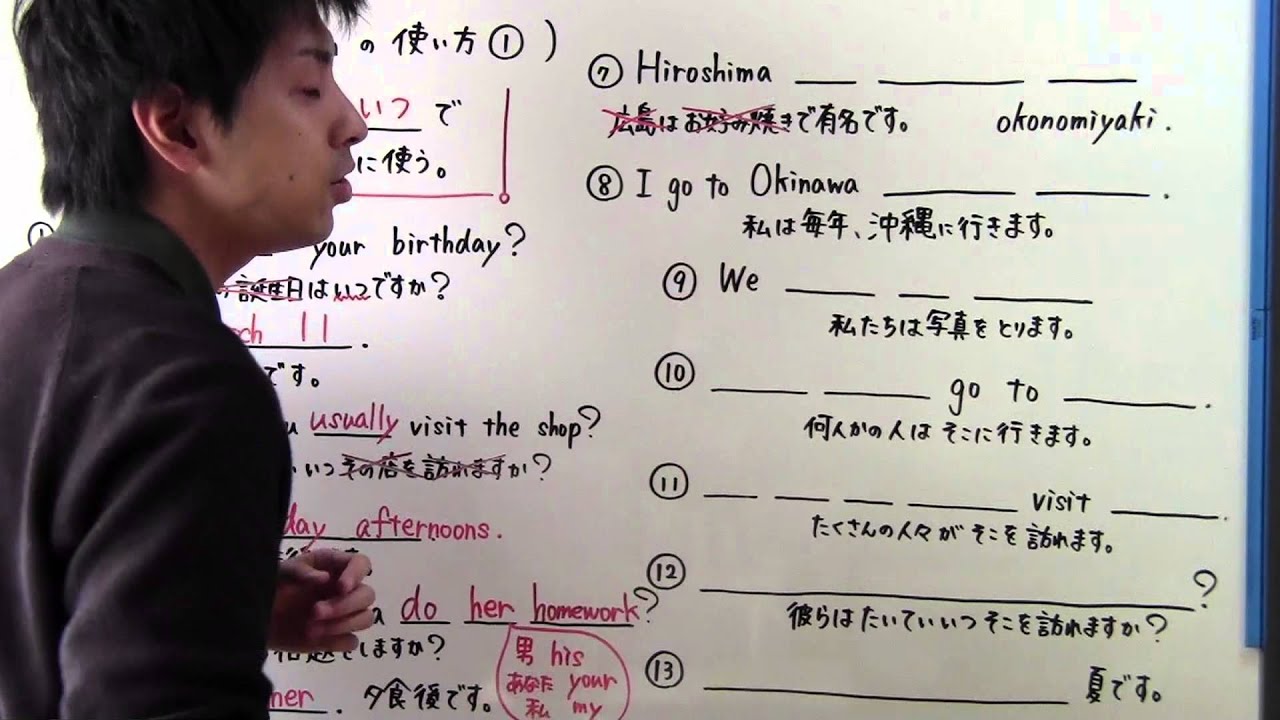 の使い方①)
いつで
に使う。
your birthday?
誕生日はいつですか?
ch 11.
です。
usually visit the shop?
いつその店を訪れますか?
day afternoons.
do her homework?
しますか?
男 his
あなた your
私 my
her. 夕食後です。
⑦ Hiroshima ___ ___ ___
広島はお好み焼きで有名です。 okonomiyaki.
⑧ I go to Okinawa ___ ___.
私は毎年、沖縄に行きます。
⑨ We ___ ___ ___
私たちは写真をとります。
⑩ ___ ___ go to ___.
何人かの人はそこに行きます。
⑪ ___ ___ ___ ___ visit ___.
たくさんの人々がそこを訪れます。
⑫ ___?
彼らはたいていいつそこを訪れますか?
⑬ ___ 夏です。